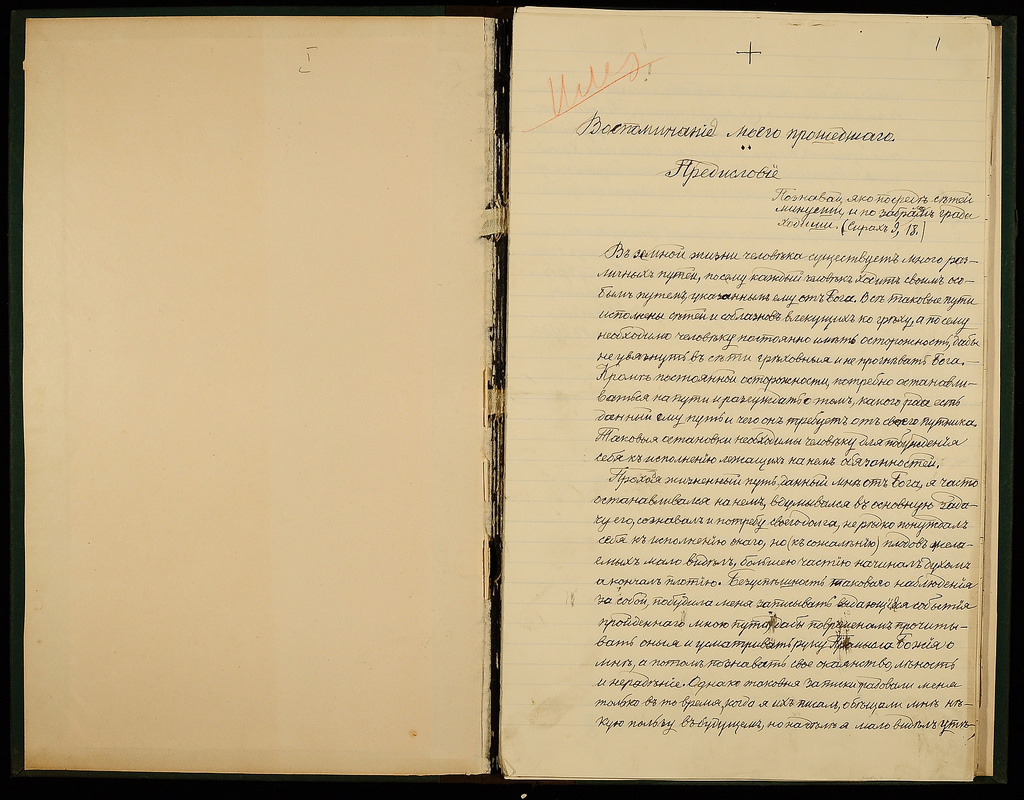 I
1
+
Воспоминаніе моего прошедшаго.
Предисловіе
Познавай, яко посредѣ сѣтей
минуеши, и по забраломъ града
ходиши. (Сирахъ 9, 18.)
Въ земной жизни человѣка существуетъ много раз-
личныхъ путей, посему каждый человѣкъ ходитъ своимъ осо-
бымъ путемъ, указаннымъ ему отъ Бога. Всѣ таковые пути
исполнены сѣтей и соблазновъ влекущихъ ко грѣху, а посему
необходимо человѣку постоянно имѣть осторожность, дабы
не увязнуть въ сѣти грѣховныя и не прогнѣвать Бога.—
Кромѣ постоянной осторожности, потребно останавли-
ваться на пути и разсуждать о томъ, какого рода есть
данный ему путь и чего онъ требуетъ отъ своего путника.
Таковыя остановки необходимы человѣку для побужденія
себя къ исполненію лежащихъ на немъ обязанностей.
Проходя жизненный путь, данный мнѣ отъ Бога, я часто
останавливался на немъ, вдумывался въ основную зада-
чу его, сознавалъ и потребу своего долга, не рѣдко понуждалъ
себя къ исполненію онаго, но (къ сожалѣнію) плодовъ жела-
емыхъ мало видѣлъ, большею частію начиналъ духомъ
а кончалъ плотію. Безуспѣшность таковаго наблюденія
за собой, побудила меня записывать выдающіяся событія
пройденнаго мною пути, дабы повременамъ прочиты-
вать оныя и усматривать руку Промысла Божія о
мнѣ, а потомъ познавать свое окаянство, лѣность
и нерадѣніе. Однако таковыя записки радовали меня
только въ то время, когда я ихъ писалъ, обѣщали мнѣ нѣ-
кую пользу въ будущемъ, но на дѣлѣ я мало видѣлъ утѣ-